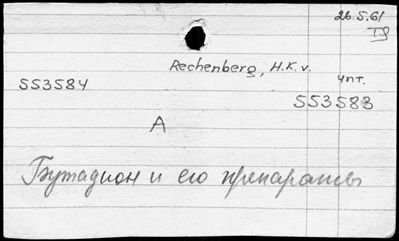 26.5.61
Rechenberg, H.K.v.
чпт.
553584
553583
A
Бутадион и его препараты